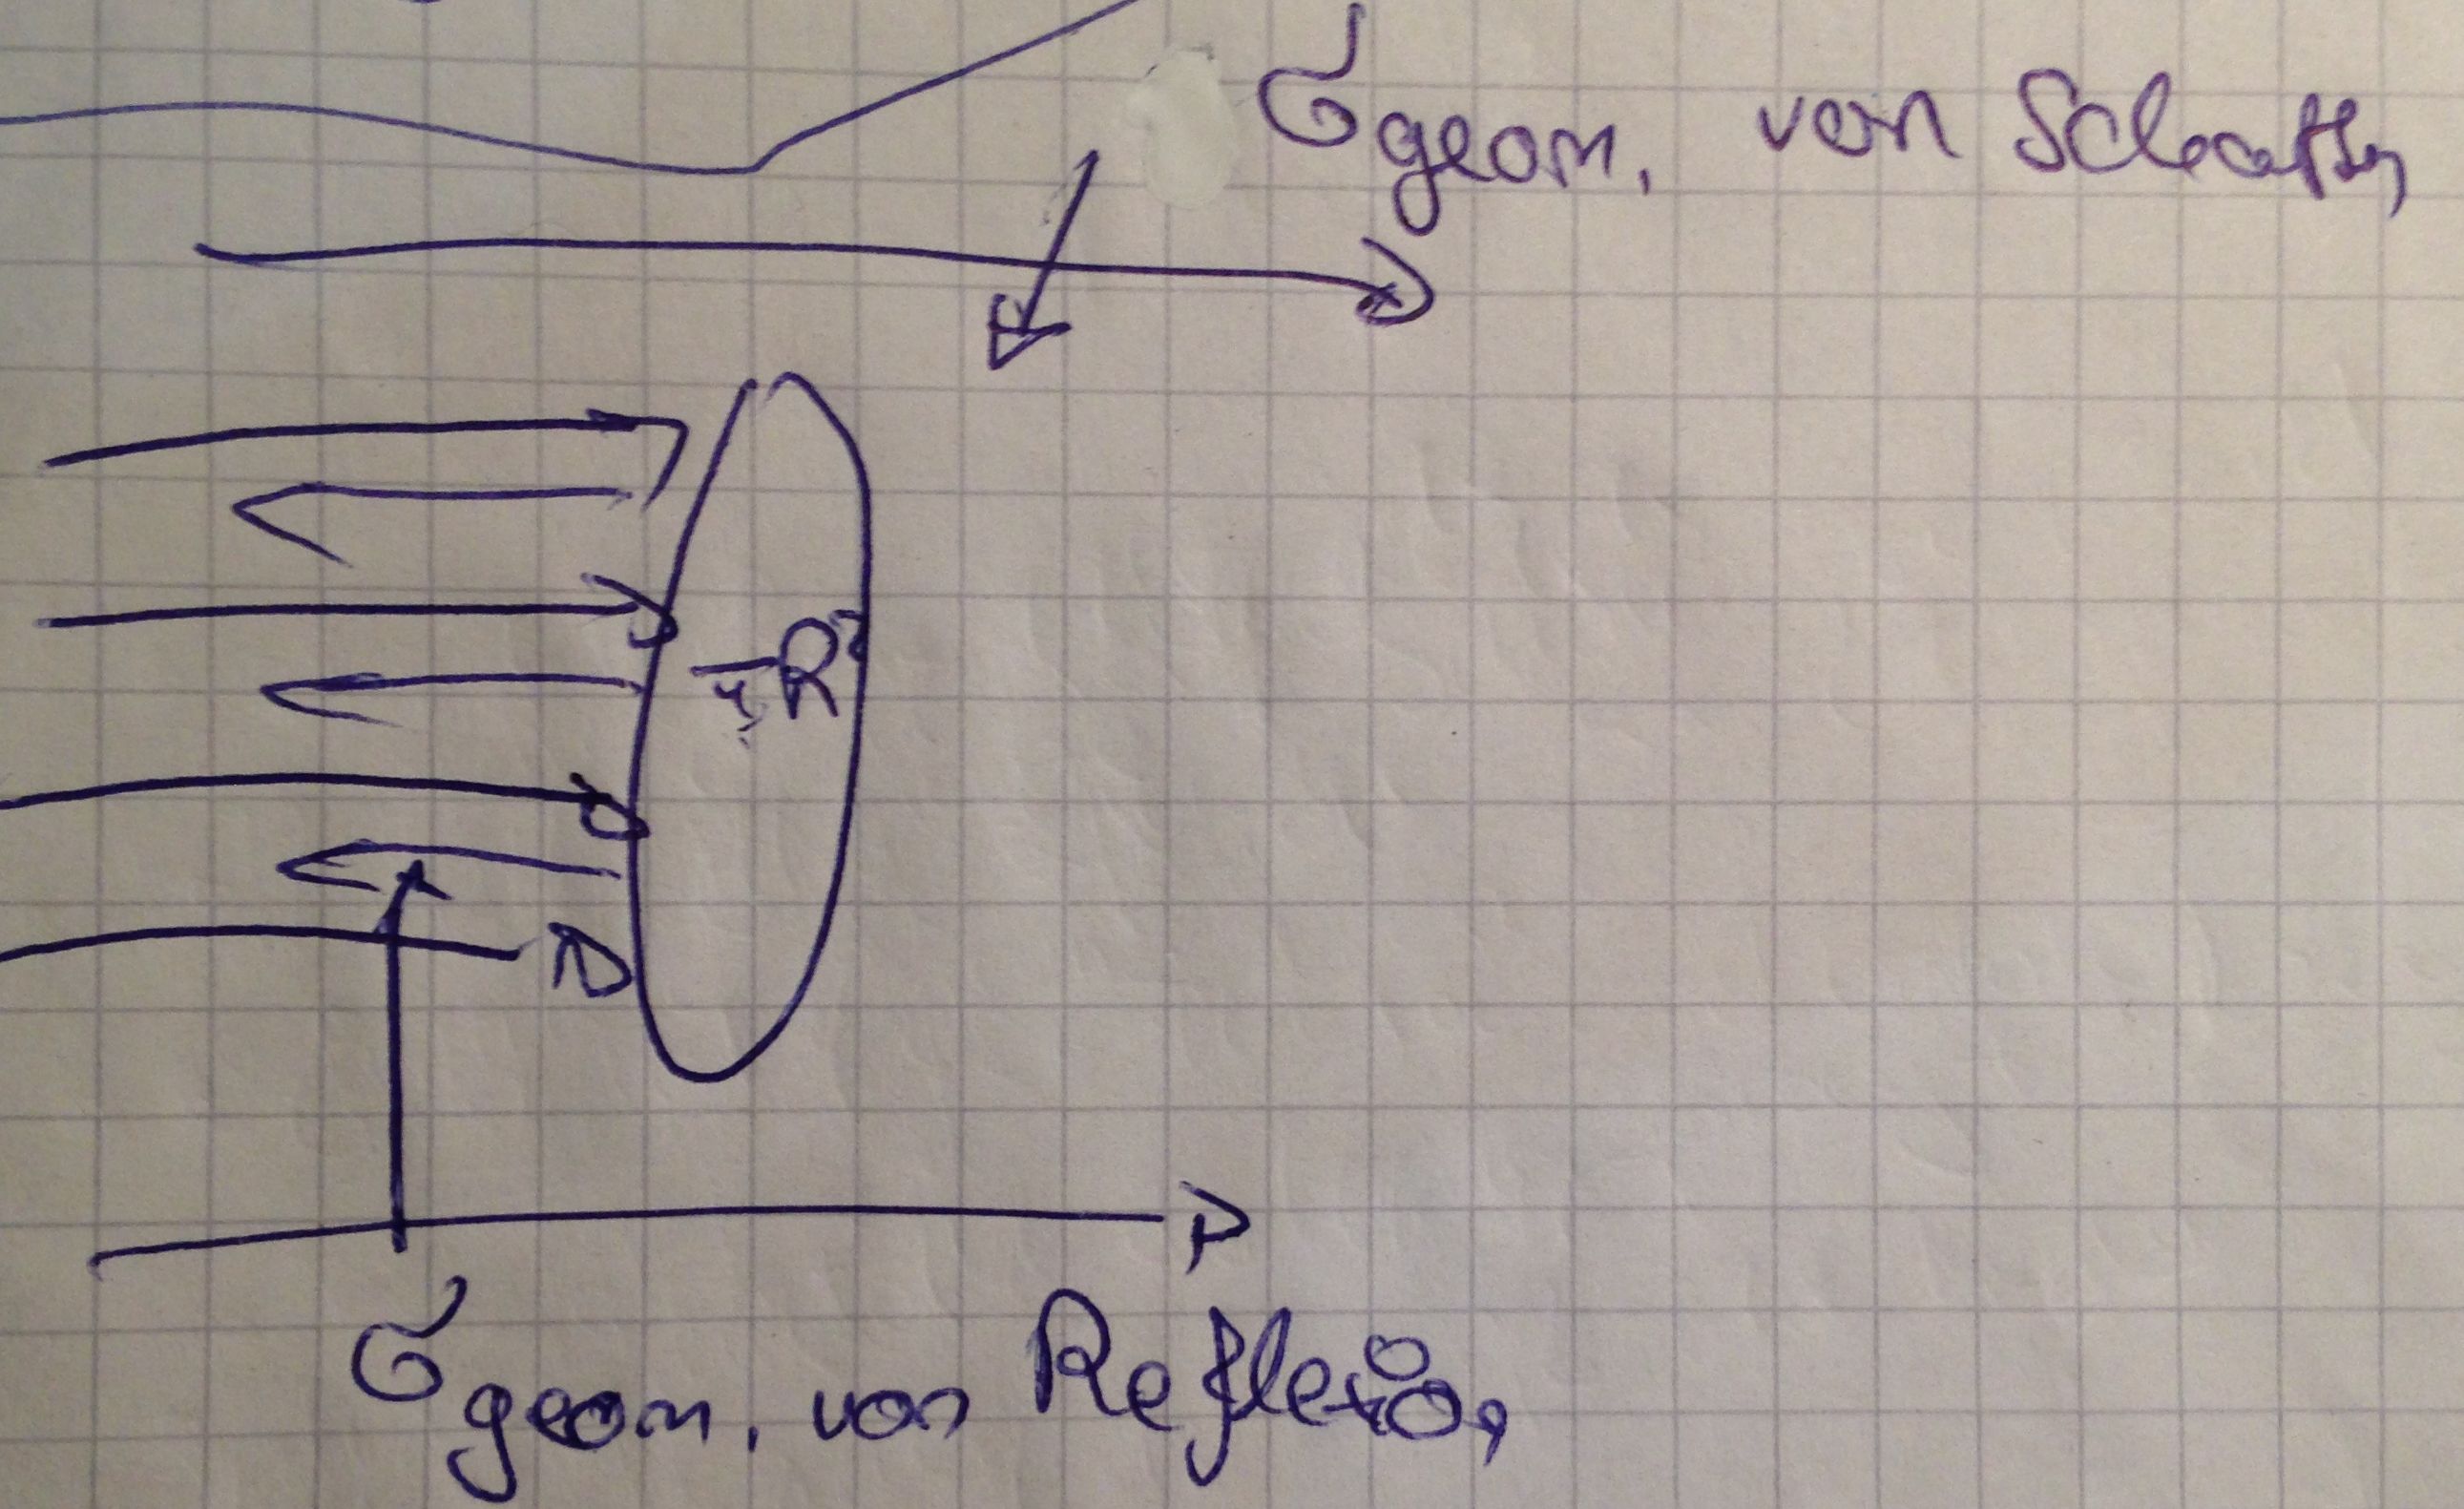 σgeom. von Schatten
πR²
σgeom. von Reflexion